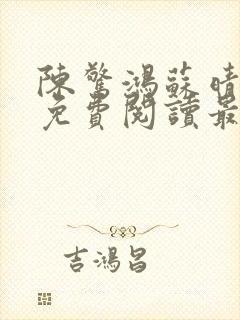 陳驚鴻蘇晴
免費閱讀最
吉鴻昌